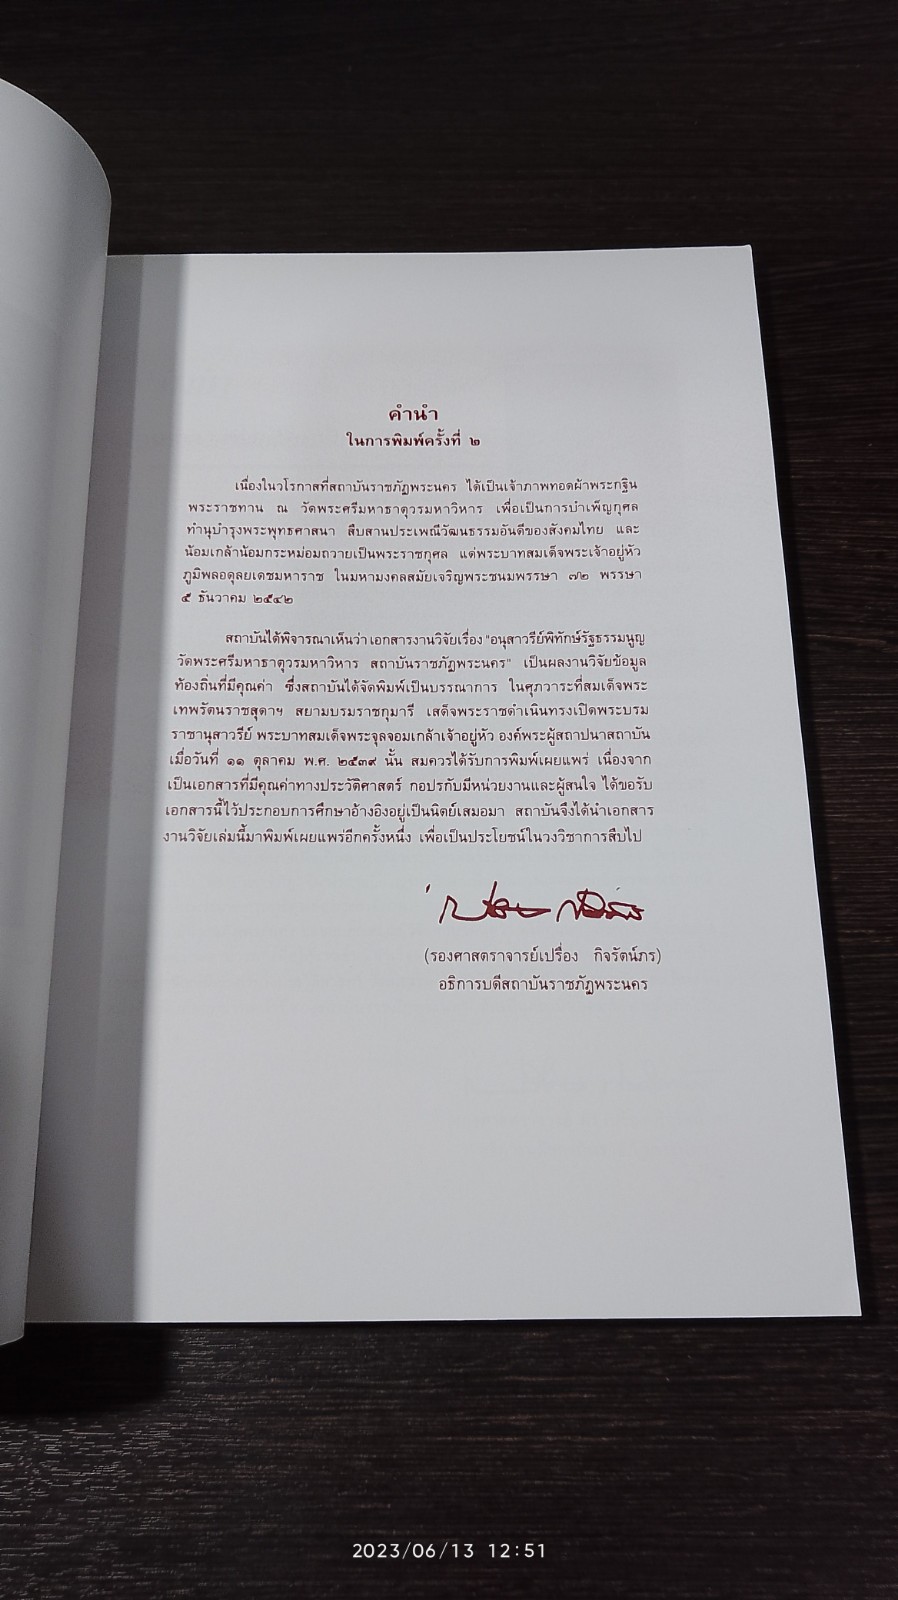 คำนำ
ในการพิมพ์ครั้งที่ ๒
เนื่องในวโรกาสที่สถาบันราชภัฏพระนคร ได้เป็นเจ้าภาพทอดผ้าพระกฐิน
พระราชทาน ณ วัดพระศรีมหาธาตุวรมหาวิหาร เพื่อเป็นการบำเพ็ญกุศล
ทำนุบำรุงพระพุทธศาสนา สืบสานประเพณีวัฒนธรรมอันดีของสังคมไทย และ
น้อมเกล้าน้อมกระหม่อมถวายเป็นพระราชกุศล แด่พระบาทสมเด็จพระเจ้าอยู่หัว
ภูมิพลอดุลยเดชมหาราช ในมหามงคลสมัยเจริญพระชนมพรรษา ๗๒ พรรษา
๕ ธันวาคม ๒๕๔๒
สถาบันได้พิจารณาเห็นว่า เอกสารงานวิจัยเรื่อง "อนุสาวรีย์พิทักษ์รัฐธรรมนูญ
วัดพระศรีมหาธาตุวรมหาวิหาร สถาบันราชภัฏพระนคร" เป็นผลงานวิจัยข้อมูล
ท้องถิ่นที่มีคุณค่า ซึ่งสถาบันได้จัดพิมพ์เป็นบรรณาการ ในศุภวาระที่สมเด็จพระ
เทพรัตนราชสุดาฯ สยามบรมราชกุมารี เสด็จพระราชดำเนินทรงเปิดพระบรม
ราชานุสาวรีย์ พระบาทสมเด็จพระจุลจอมเกล้าเจ้าอยู่หัว องค์พระผู้สถาปนาสถาบัน
เมื่อวันที่ ๑๑ ตุลาคม พ.ศ. ๒๕๓๙ นั้น สมควรได้รับการพิมพ์เผยแพร่ เนื่องจาก
เป็นเอกสารที่มีคุณค่าทางประวัติศาสตร์ กอปรกับมีหน่วยงานและผู้สนใจ ได้ขอรับ
เอกสารนี้ไว้ประกอบการศึกษาอ้างอิงอยู่เป็นนิตย์เสมอมา สถาบันจึงได้นำเอกสาร
งานวิจัยเล่มนี้มาพิมพ์เผยแพร่อีกครั้งหนึ่ง เพื่อเป็นประโยชน์ในวงวิชาการสืบไป
(รองศาสตราจารย์เปรื่อง กิจรัตน์ภร)
อธิการบดีสถาบันราชภัฏพระนคร
2023/06/13 12:51